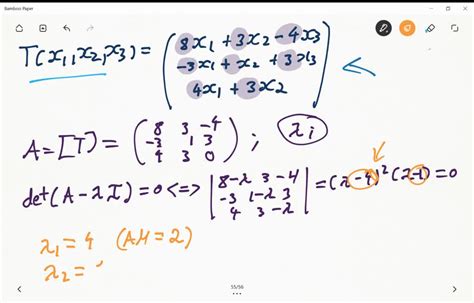 Bamboo Paper
T(x₁,x₂,x₃) = ( 8x₁ + 3x₂ - 4x₃
-3x₁ + x₂ + 3x₃
4x₁ + 3x₂ )
A = [T] = ( 8 3 -4
-3 1 3
4 3 0 ) ; λi
det(A - λI) = 0 <=> | 8-λ 3 -4
-3 1-λ 3
4 3 -λ | = (λ-4)²(λ-1) = 0
λ₁ = 4 (AM = 2)
λ₂ =
55/56